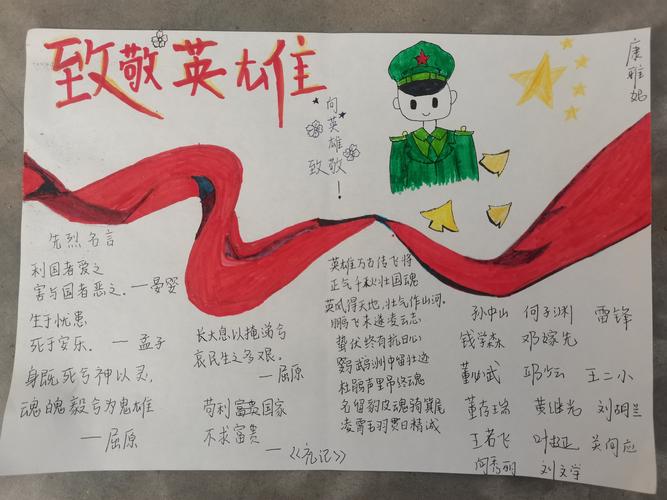 致敬英雄
向英雄
致敬！
康雅妮
先烈名言
利国者爱之
害与国者恶之.—晏婴
生于忧患
死于安乐.—孟子
身既死兮神以灵,
魂魄毅兮为鬼雄
—屈原
长太息以掩涕兮
哀民生之多艰.
—屈原
苟利国家
不求富贵
—《礼记》
英雄万古传飞将
正气千秋壮国魂
英风得天地,壮气作山河.
鹏飞未遂凌云志
蛰伏终有抗日心
鹦鹉洲中留壮迹
杜鹃声里吊终魂
名留豹皮魂骑箕尾
凌霄毛羽贯日精诚
孙中山 何子渊 雷锋
钱学森 邓稼先
董必武 邱少云 王二小
董存瑞 黄继光 刘胡兰
王若飞 叶挺 关向应
闫秀丽 刘文学